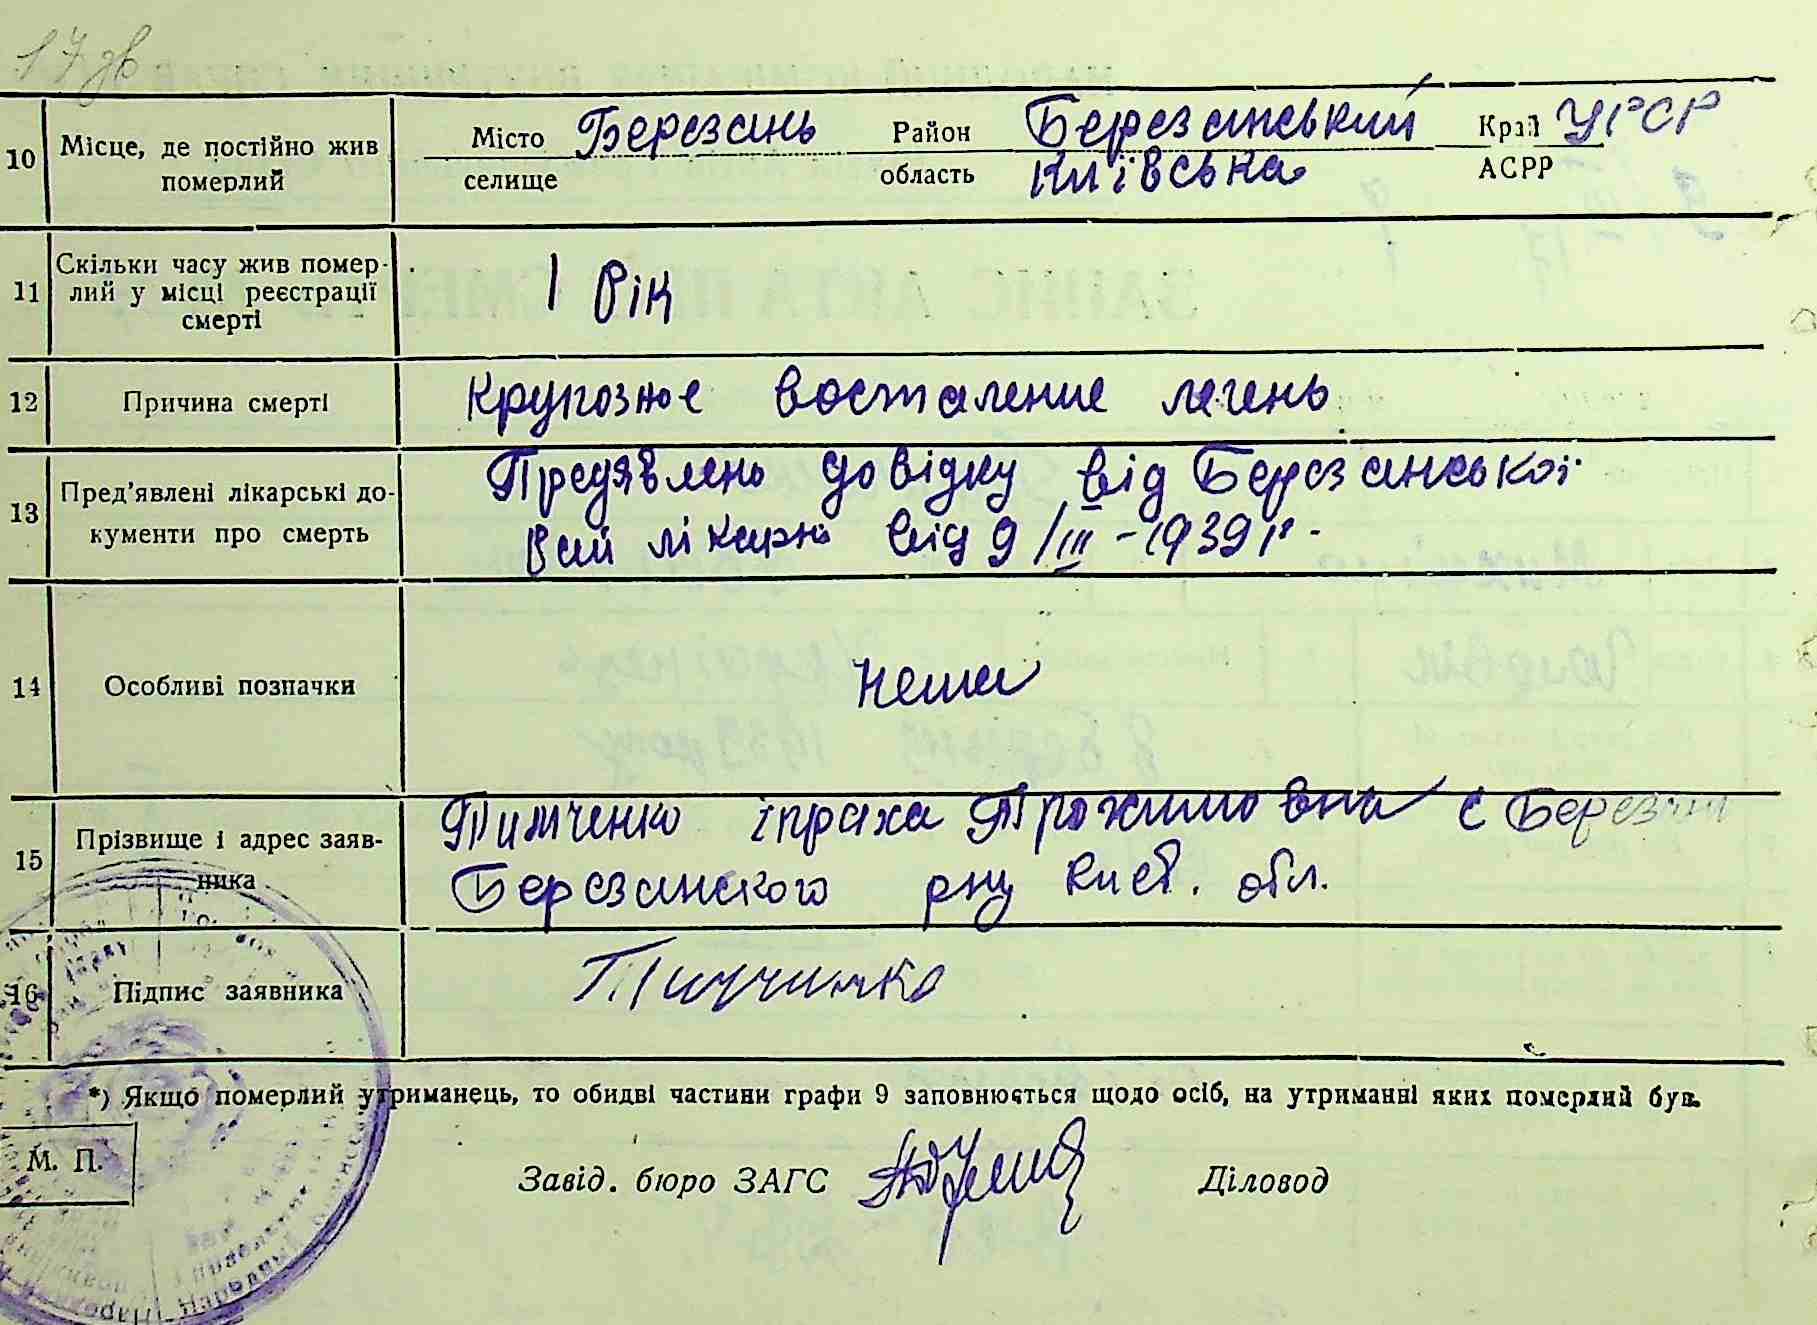 17 зв
10 Місце, де постійно жив померлий Місто Березань Район Березанський Край УРСР
селище область Київська АСРР
11 Скільки часу жив помер-
лий у місці реєстрації
смерті
1 рік
12 Причина смерті Крупозное воспаление легень
13 Пред'явлені лікарські до-
кументи про смерть
Предявлено довідку від Березанської
Рай лікарні від 9/III-1939 р.
14 Особливі позначки Нема
15 Прізвище і адрес заяв-
ника
Тимченко іпраха Трохимовна с Березань
Березанского рну Киев. обл.
16 Підпис заявника Тимчинко
*) Якщо померлий утриманець, то обидві частини графи 9 заповнюється щодо осіб, на утриманні яких померлий був.
М. П.
Завід. бюро ЗАГС Діловод